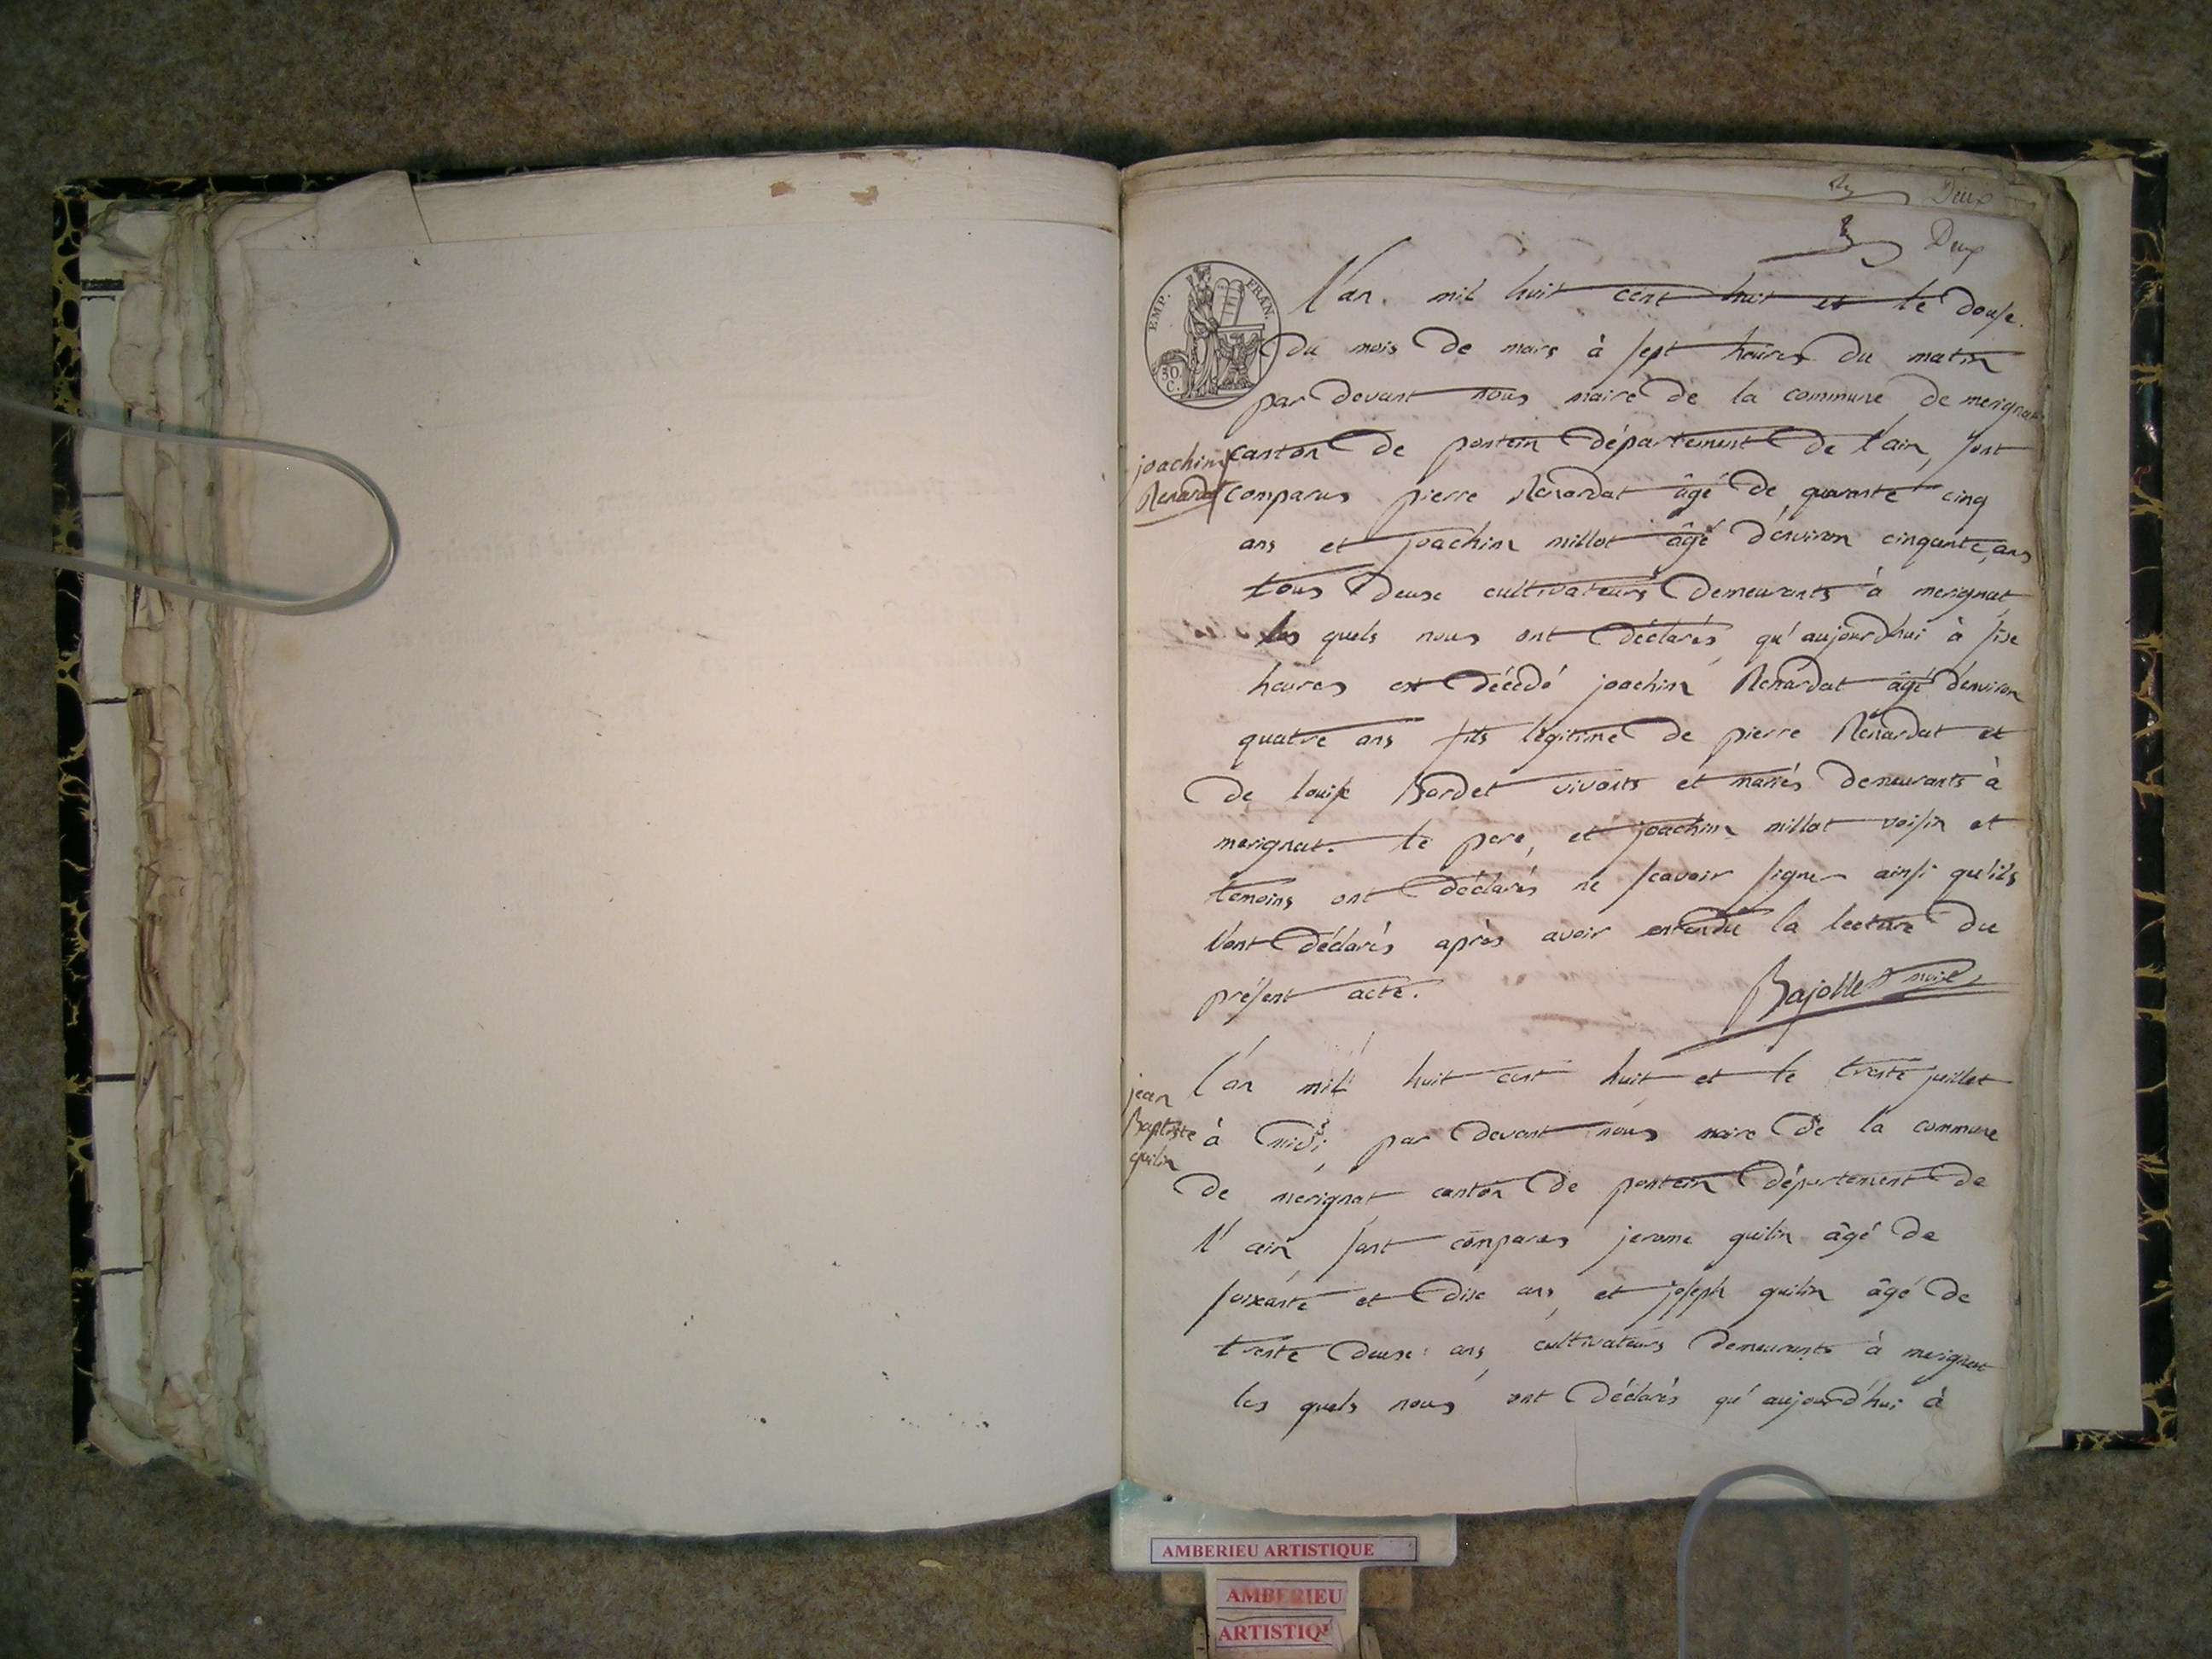 Deux
Deux
EMP. FRAN.
30. C.
l'an mil huit cent huit et le douse
du mois de mars à sept heures du matin
par devant nous maire de la commune de merignat
joachim
Renardat
canton de poncin département de l'ain, sont
comparus pierre Renardat âgé de quarante cinq
ans et joachim millot âgé d'environ cinquante ans
tous deux cultivateurs demeurants à merignat
les quels nous ont déclarés qu'aujourdhui à six
heures est décédé joachim Renardat âgé d'environ
quatre ans fils légitime de pierre Renardat et
de louise Bordet vivants et mariés demeurants à
merignat. le pere, et joachim millot voisin et
temoins ont déclarés ne scavoir signer ainsi qu'ils
l'ont déclarés après avoir entendu la lecture du
présent acte.
Bajollet maire
jean
Baptiste
guilin
l'an mil huit cent huit et le trente juillet
à midi par devant nous maire de la commune
de merignat canton de poncin département de
l'ain sont comparus jerome guilin âgé de
soixante et dix ans et joseph guilin âgé de
trente deux ans cultivateurs demeurants à merignat
les quels nous ont déclarés qu'aujourd'hui à
AMBERIEU ARTISTIQUE
AMBERIEU
ARTISTIQU